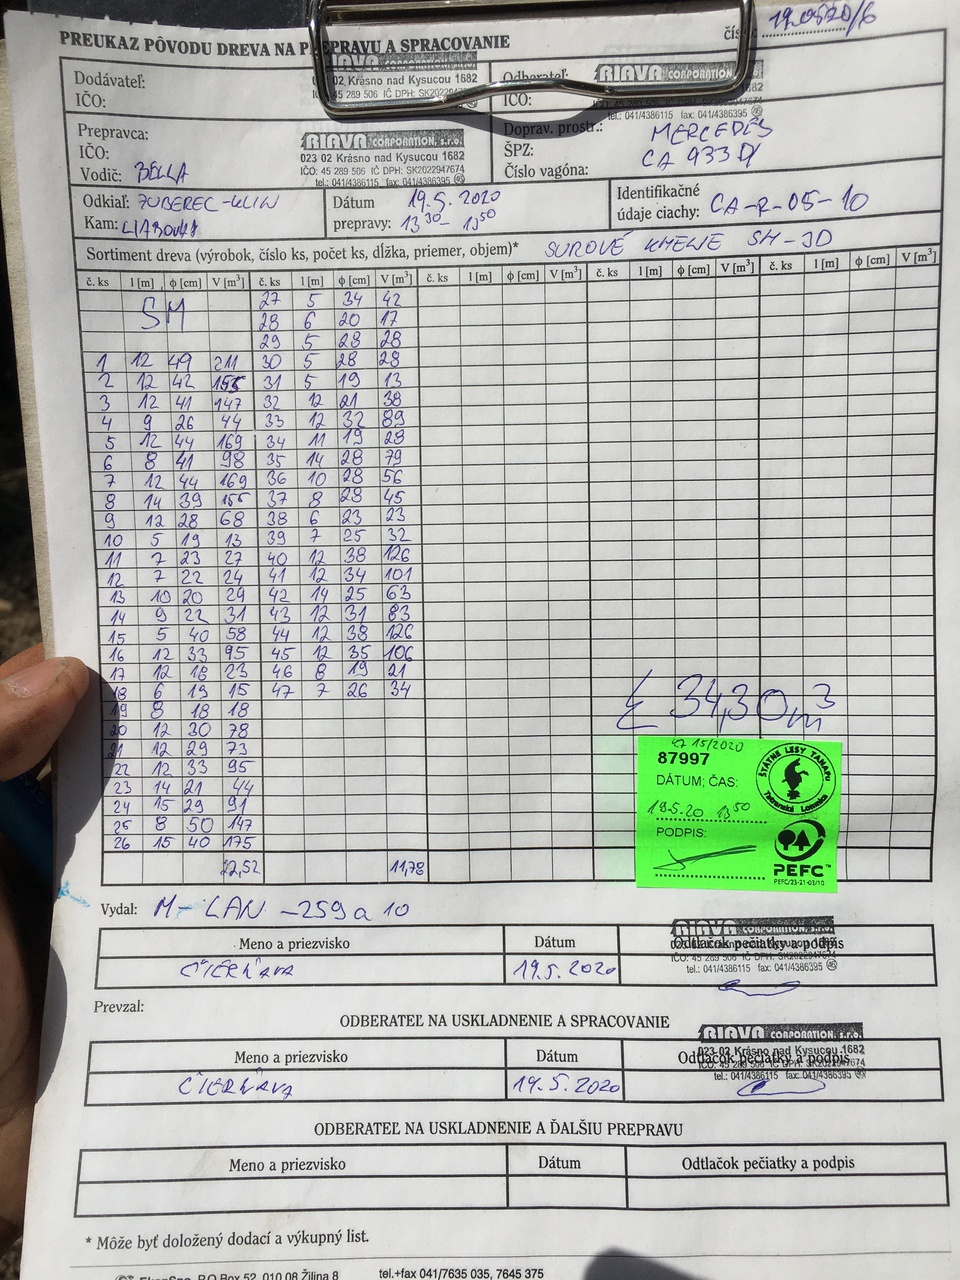 PREUKAZ PÔVODU DREVA NA PREPRAVU A SPRACOVANIE
19.0520/6
Dodávateľ:
IČO:
02 Krásno nad Kysucou 1682
45 289 506 IČ DPH:
Odberateľ:
IČO:
RIAVA CORPORATION
tel.: 041/4386115 fax: 041/4386395
Prepravca:
IČO:
Vodič: BELLA
RIAVA CORPORATION, s.r.o.
023 02 Krásno nad Kysucou 1682
IČO: 45 289 506 IČ DPH: SK2022947674
tel.: 041/4386115 fax: 041/4386395
Doprav. prostr.: MERCEDES
ŠPZ: CA 933
Číslo vagóna:
Odkiaľ: ZUBEREC-KLIN
Kam:
Dátum 19.5.2020
prepravy: 13 30 - 13 50
Identifikačné
údaje ciachy: CA-R-05-10
Sortiment dreva (výrobok, číslo ks, počet ks, dĺžka, priemer, objem)* SUROVÉ KMENE SM-3D
č. ks l [m] ϕ [cm] V [m³] č. ks l [m] ϕ [cm] V [m³] č. ks l [m] ϕ [cm] V [m³] č. ks l [m] ϕ [cm] V [m³] č. ks l [m] ϕ [cm] V [m³]
SM 27 5 34 42
28 6 20 17
29 5 28 28
1 12 49 211 30 5 28 28
2 12 42 155 31 5 19 13
3 12 41 147 32 12 21 38
4 9 26 44 33 12 32 89
5 12 44 169 34 11 19 28
6 8 41 98 35 14 28 79
7 12 44 169 36 10 28 56
8 14 39 155 37 8 28 45
9 12 28 68 38 6 23 23
10 5 19 13 39 7 25 32
11 7 23 27 40 12 38 126
12 7 22 24 41 12 34 101
13 10 20 29 42 14 25 63
14 9 22 31 43 12 31 83
15 5 40 58 44 12 38 126
16 12 33 95 45 12 35 106
17 12 18 23 46 8 19 21
18 6 19 15 47 7 26 34
19 8 18 18
20 12 30 78
21 12 29 73
22 12 33 95
23 14 21 44
24 15 29 91
25 8 50 147
26 15 40 175
22,52 11,78
34,30 m³
15/2020
87997
DÁTUM; ČAS:
19.5.20 13 50
PODPIS:
ŠTÁTNE LESY TANAPU
Tatranská Lomnica
PEFC™
PEFC/23-21-03/10
Vydal: M-LAN -259 a 10
Meno a priezvisko Dátum Odtlačok pečiatky a podpis
ČIERŇAVA 19.5.2020
RIAVA CORPORATION, s.r.o.
IČO: 45 289 506 IČ DPH: SK2022947674
tel.: 041/4386115 fax: 041/4386395
Prevzal:
ODBERATEĽ NA USKLADNENIE A SPRACOVANIE
RIAVA CORPORATION, s.r.o.
023 02 Krásno nad Kysucou 1682
Meno a priezvisko Dátum Odtlačok pečiatky a podpis
IČO: 45 289 506 IČ DPH: SK2022947674
tel.: 041/4386115 fax: 041/4386395
ČIERŇAVA 19.5.2020
ODBERATEĽ NA USKLADNENIE A ĎALŠIU PREPRAVU
Meno a priezvisko Dátum Odtlačok pečiatky a podpis
* Môže byť doložený dodací a výkupný list.
P.O.Box 52, 010 08 Žilina 8 tel.+fax 041/7635 035, 7645 375